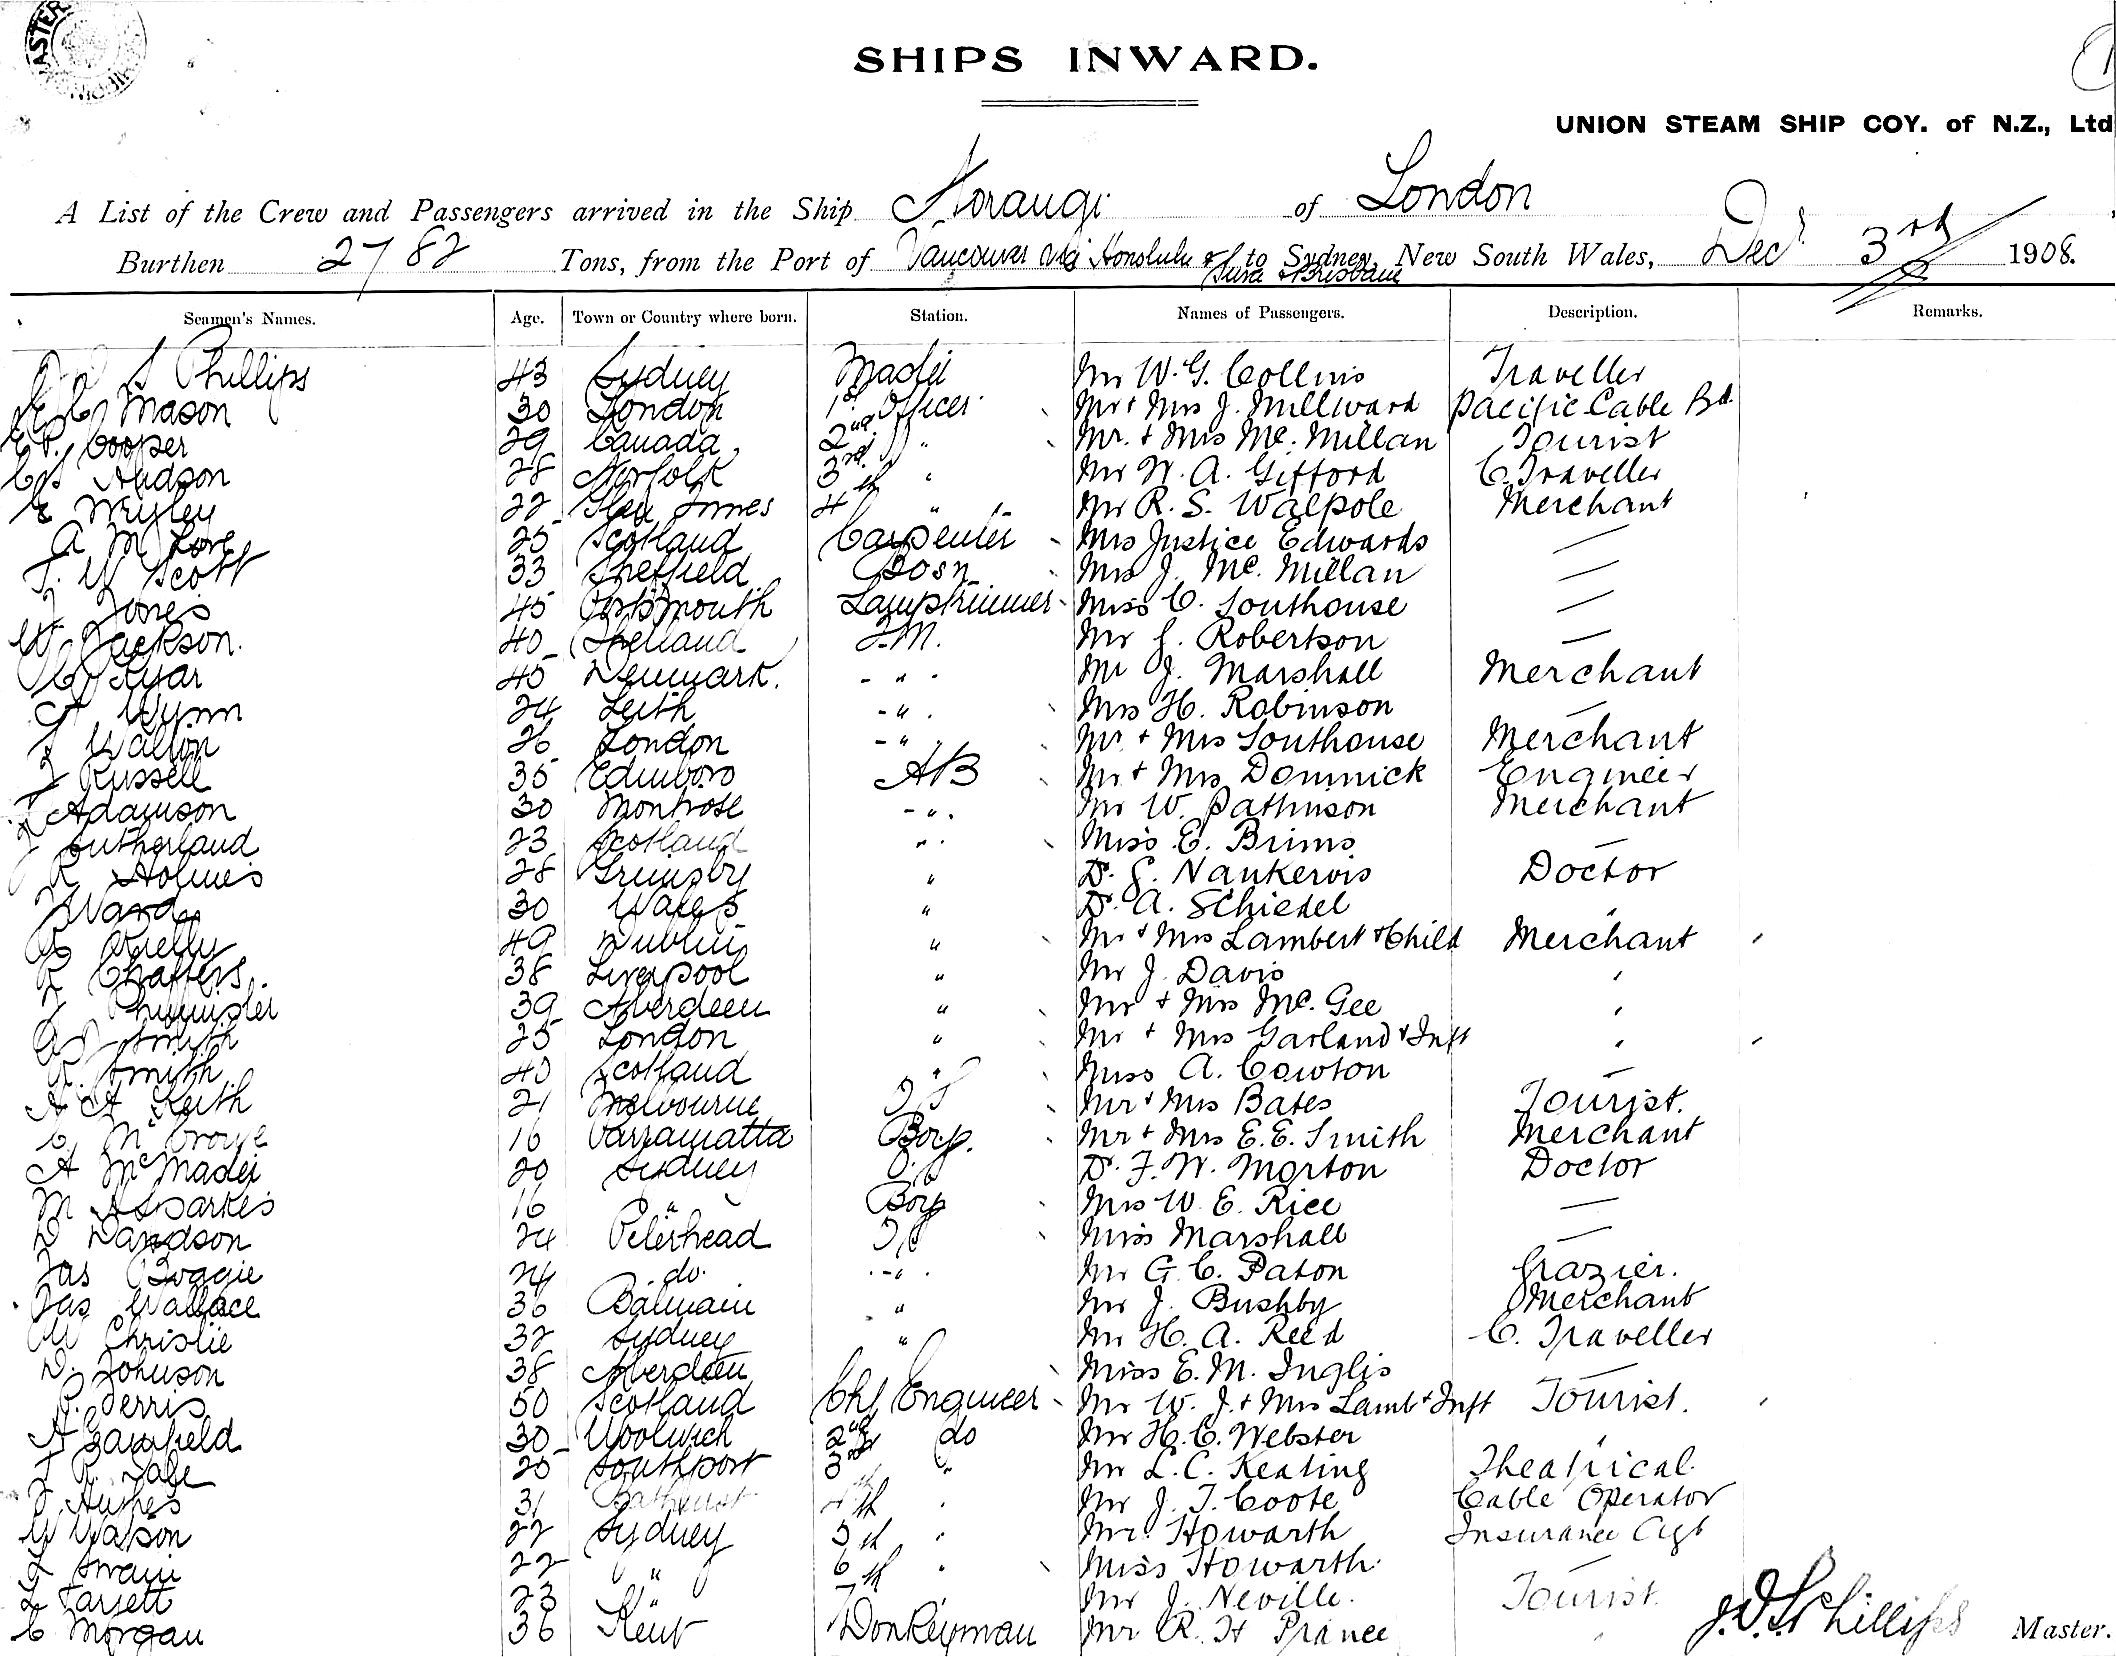 SHIPS INWARD.
UNION STEAM SHIP COY. of N.Z., Ltd
A List of the Crew and Passengers arrived in the Ship Aorangi of London
Burthen 2782 Tons, from the Port of Vancouver via Honolulu & to Sydney, New South Wales, Decr 3rd 1908.
Suva & Brisbane
Seamen's Names. Age. Town or Country where born. Station. Names of Passengers. Description. Remarks.
J D S Phillips 43 Sydney Master Mr W. G. Collins Traveller
Mason 30 London 1st Officer Mr & Mrs J. Millward Pacific Cable Bd.
Cooper 29 Canada 2nd " Mr. & Mrs Mc. Millan Tourist
Hudson 28 Norfolk 3rd " Mr W. A. Gifford C. Traveller
E Weyley 22 Glen Innes 4th " Mr R. S. Walpole Merchant
A M Love 25 Scotland Carpenter Mrs Justice Edwards —
T. W Scott 33 Sheffield Bosn Mrs J. Mc. Millan —
Jones 45 Portsmouth Lamptrimmer Miss C. Southouse —
W Jackson. 40 Shetland F.M. Mr J. Robertson —
C Kyar 45 Denmark. - " - Mr J. Marshall Merchant
Wynn 24 Leith - " . Mrs H. Robinson —
Walton 26 London - " . Mr & Mrs Southouse Merchant
J Russell 35 Edinboro AB Mr & Mrs Dominick Engineer
Adamson 30 Montrose - " . Mr W. Pattinson Merchant
J Sutherland 23 Scotland " Miss E. Brims —
R Holmes 28 Grimsby " Dr. G. Nankervis Doctor
Ward 30 Wales " Dr. A. Schiedel "
Kelly 49 Dublin " Mr & Mrs Lambert & Child Merchant
Chaffers. 38 Liverpool " Mr J. Davis "
39 Aberdeen " Mr & Mrs Mc. Gee "
Smith 25 London " Mr & Mrs Garland & Inft "
R. Smith 40 Scotland " Miss A. Cowton —
A A Keith 21 Melbourne OS Mr & Mrs Bates Tourist.
C. 16 Parramatta Boy. Mr & Mrs E. E. Smith Merchant
A 20 Sydney O.S Dr. F. W. Morton Doctor
M 16 " Boy Mrs W. E. Rice —
D Davidson 24 Peterhead Miss Marshall —
Jas Boggie 24 do. - " . Mr G. C. Paton Grazier.
Jas Wallace 36 Balmain " Mr J. Bushby Merchant
W Christie 32 Sydney " Mr H. A. Reed C. Traveller
D. Johnson 38 Aberdeen Miss E. M. Inglis —
Ferris 50 Scotland Chf Engineer Mr W. J. & Mrs Lamb & Inft Tourist.
A 30 Woolwich 2nd do Mr H. C. Webster "
25 Southport 3rd " Mr L. C. Keating Theatrical.
Hughes 31 Bathurst 4th " Mr J. T. Coote Cable Operator
W Watson 22 Sydney 5th " Mr. Howarth Insurance Agt
Swain 22 " 6th " Miss Howarth. —
23 " 7 Mr J. Neville. Tourist.
C Morgan 36 Kent Donkeyman Mr R. H Prance "
J.D.S. Phillips Master.